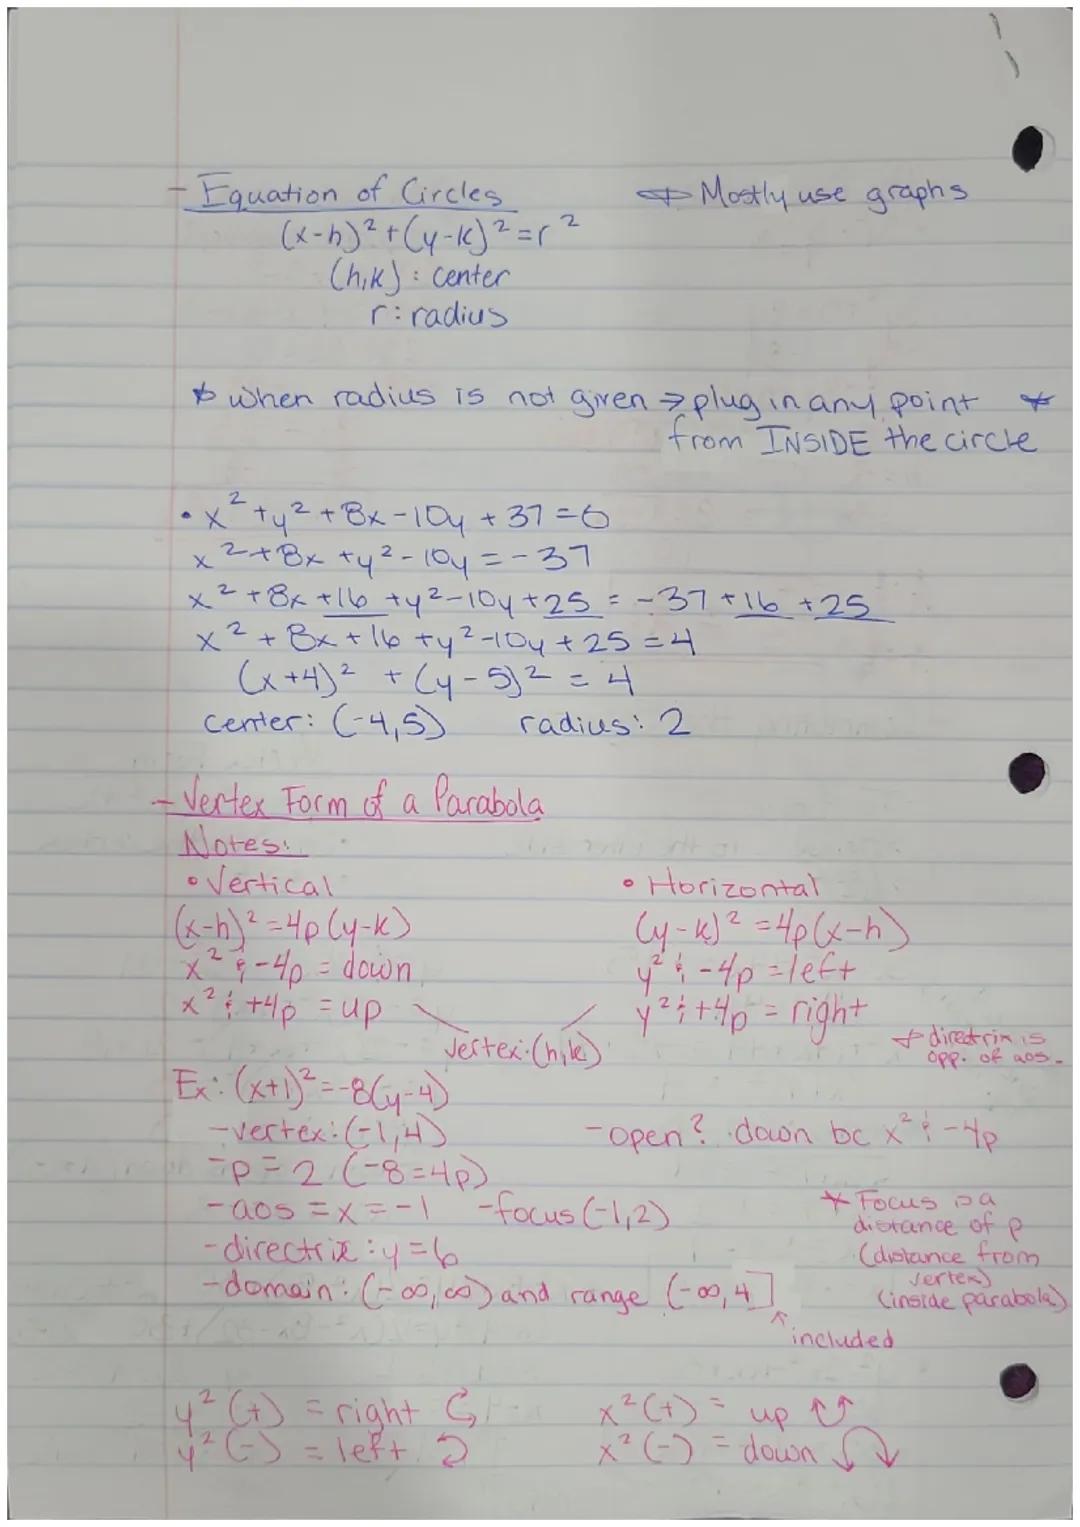 - Equation of Circles
* Mostly use graphs
(x-h)²+(y-k)²=r²
(h,k): center
r: radius
* when radius is not given → plug in any point *
from INSIDE the circle
• x²+y²+8x-10y+37=0
x²+8x+y²-10y=-37
x²+8x+16+y²-10y+25=-37+16+25
x²+8x+16+y²-10y+25=4
(x+4)²+(y-5)²=4
center: (-4,5) radius: 2
- Vertex Form of a Parabola
Notes:
• Vertical
• Horizontal
(x-h)²=4p(y-k)
(y-k)²=4p(x-h)
x² & -4p = down
y² & -4p = left
x² & +4p = up
y² & +4p = right
vertex: (h,k)
* directrix is
opp. of aos.
Ex: (x+1)²=-8(y-4)
- vertex: (-1,4)
- open? down bc x² & -4p
- p = 2 (-8=4p)
- aos = x = -1 - focus (-1,2)
- directrix: y=6
- domain: (-∞,∞) and range (-∞,4]
included
* Focus is a
distance of p
(distance from
vertex)
(inside parabola)
y²(+) = right
x²(+) = up
y²(-) = left
x²(-) = down